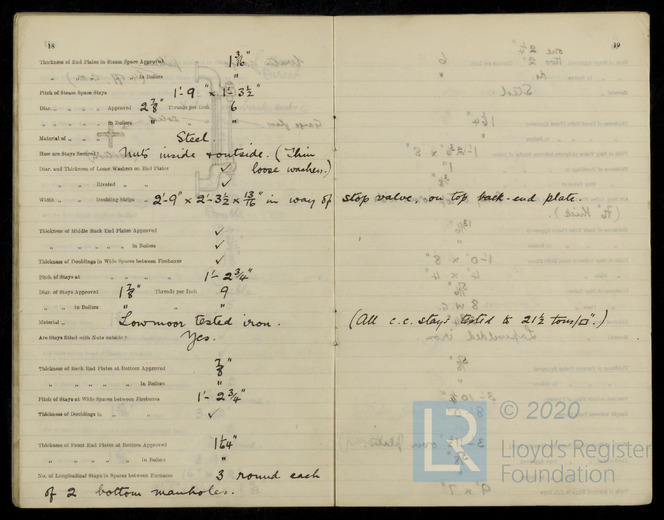 18
Thickness of End Plates in Steam Space Approved 1 3/16"
" " " in Boilers "
Pitch of Steam Space Stays 1'-9" x 1'-3½"
Diar. " " Approved 2⅞" Threads per Inch 6
" " in Boilers " "
Material of " " Steel.
How are Stays Secured Nuts inside & outside. (Thin
Diar. and Thickness of Loose Washers on End Plates ✓ loose washers.)
" " Riveted " " ✓
Width " " Doubling Strips 2'-9" x 2'-3½ x 13/16" in way of stop valve, on top back-end plate.
Thickness of Middle Back End Plates Approved ✓
" " " " in Boilers ✓
Thickness of Doublings in Wide Spaces between Fireboxes ✓
Pitch of Stays at " " " " 1'-2¾"
Diar. of Stays Approved 1⅞" Threads per Inch 9
" " in Boilers " "
Material " Lowmoor tested iron. (All c.c. stays tested to 21½ tons/□".)
Are Stays fitted with Nuts outside? Yes.
Thickness of Back End Plates at Bottom Approved ⅞"
" " " " in Boilers "
Pitch of Stays at Wide Spaces between Fireboxes 1'-2¾"
Thickness of Doublings in " " ✓
Thickness of Front End Plates at Bottom Approved 1 1/64"
" " " " in Boilers "
No. of Longitudinal Stays in Spaces between Furnaces 3 round each
of 2 bottom manholes.
19
LR
© 2020
Lloyd's Register
Foundation